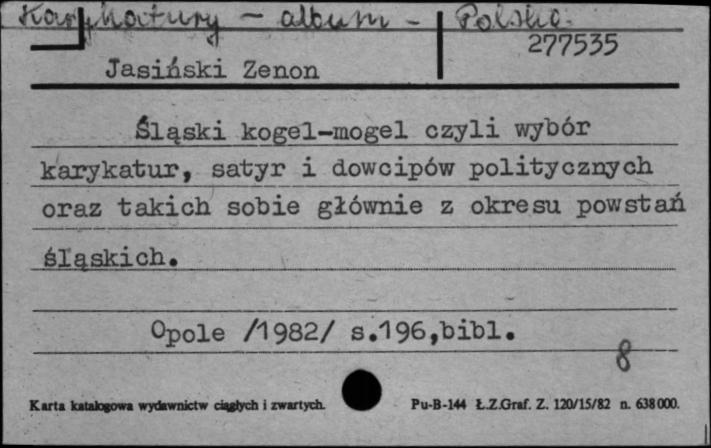 Karykatury - album - Polska.
277535
Jasiński Zenon
Śląski kogel-mogel czyli wybór
karykatur, satyr i dowcipów politycznych
oraz takich sobie głównie z okresu powstań
śląskich.
Opole /1982/ s.196,bibl.
8
Karta katalogowa wydawnictw ciągłych i zwartych. Pu-B-144 Ł.Z.Graf. Z. 120/15/82 n. 638000.